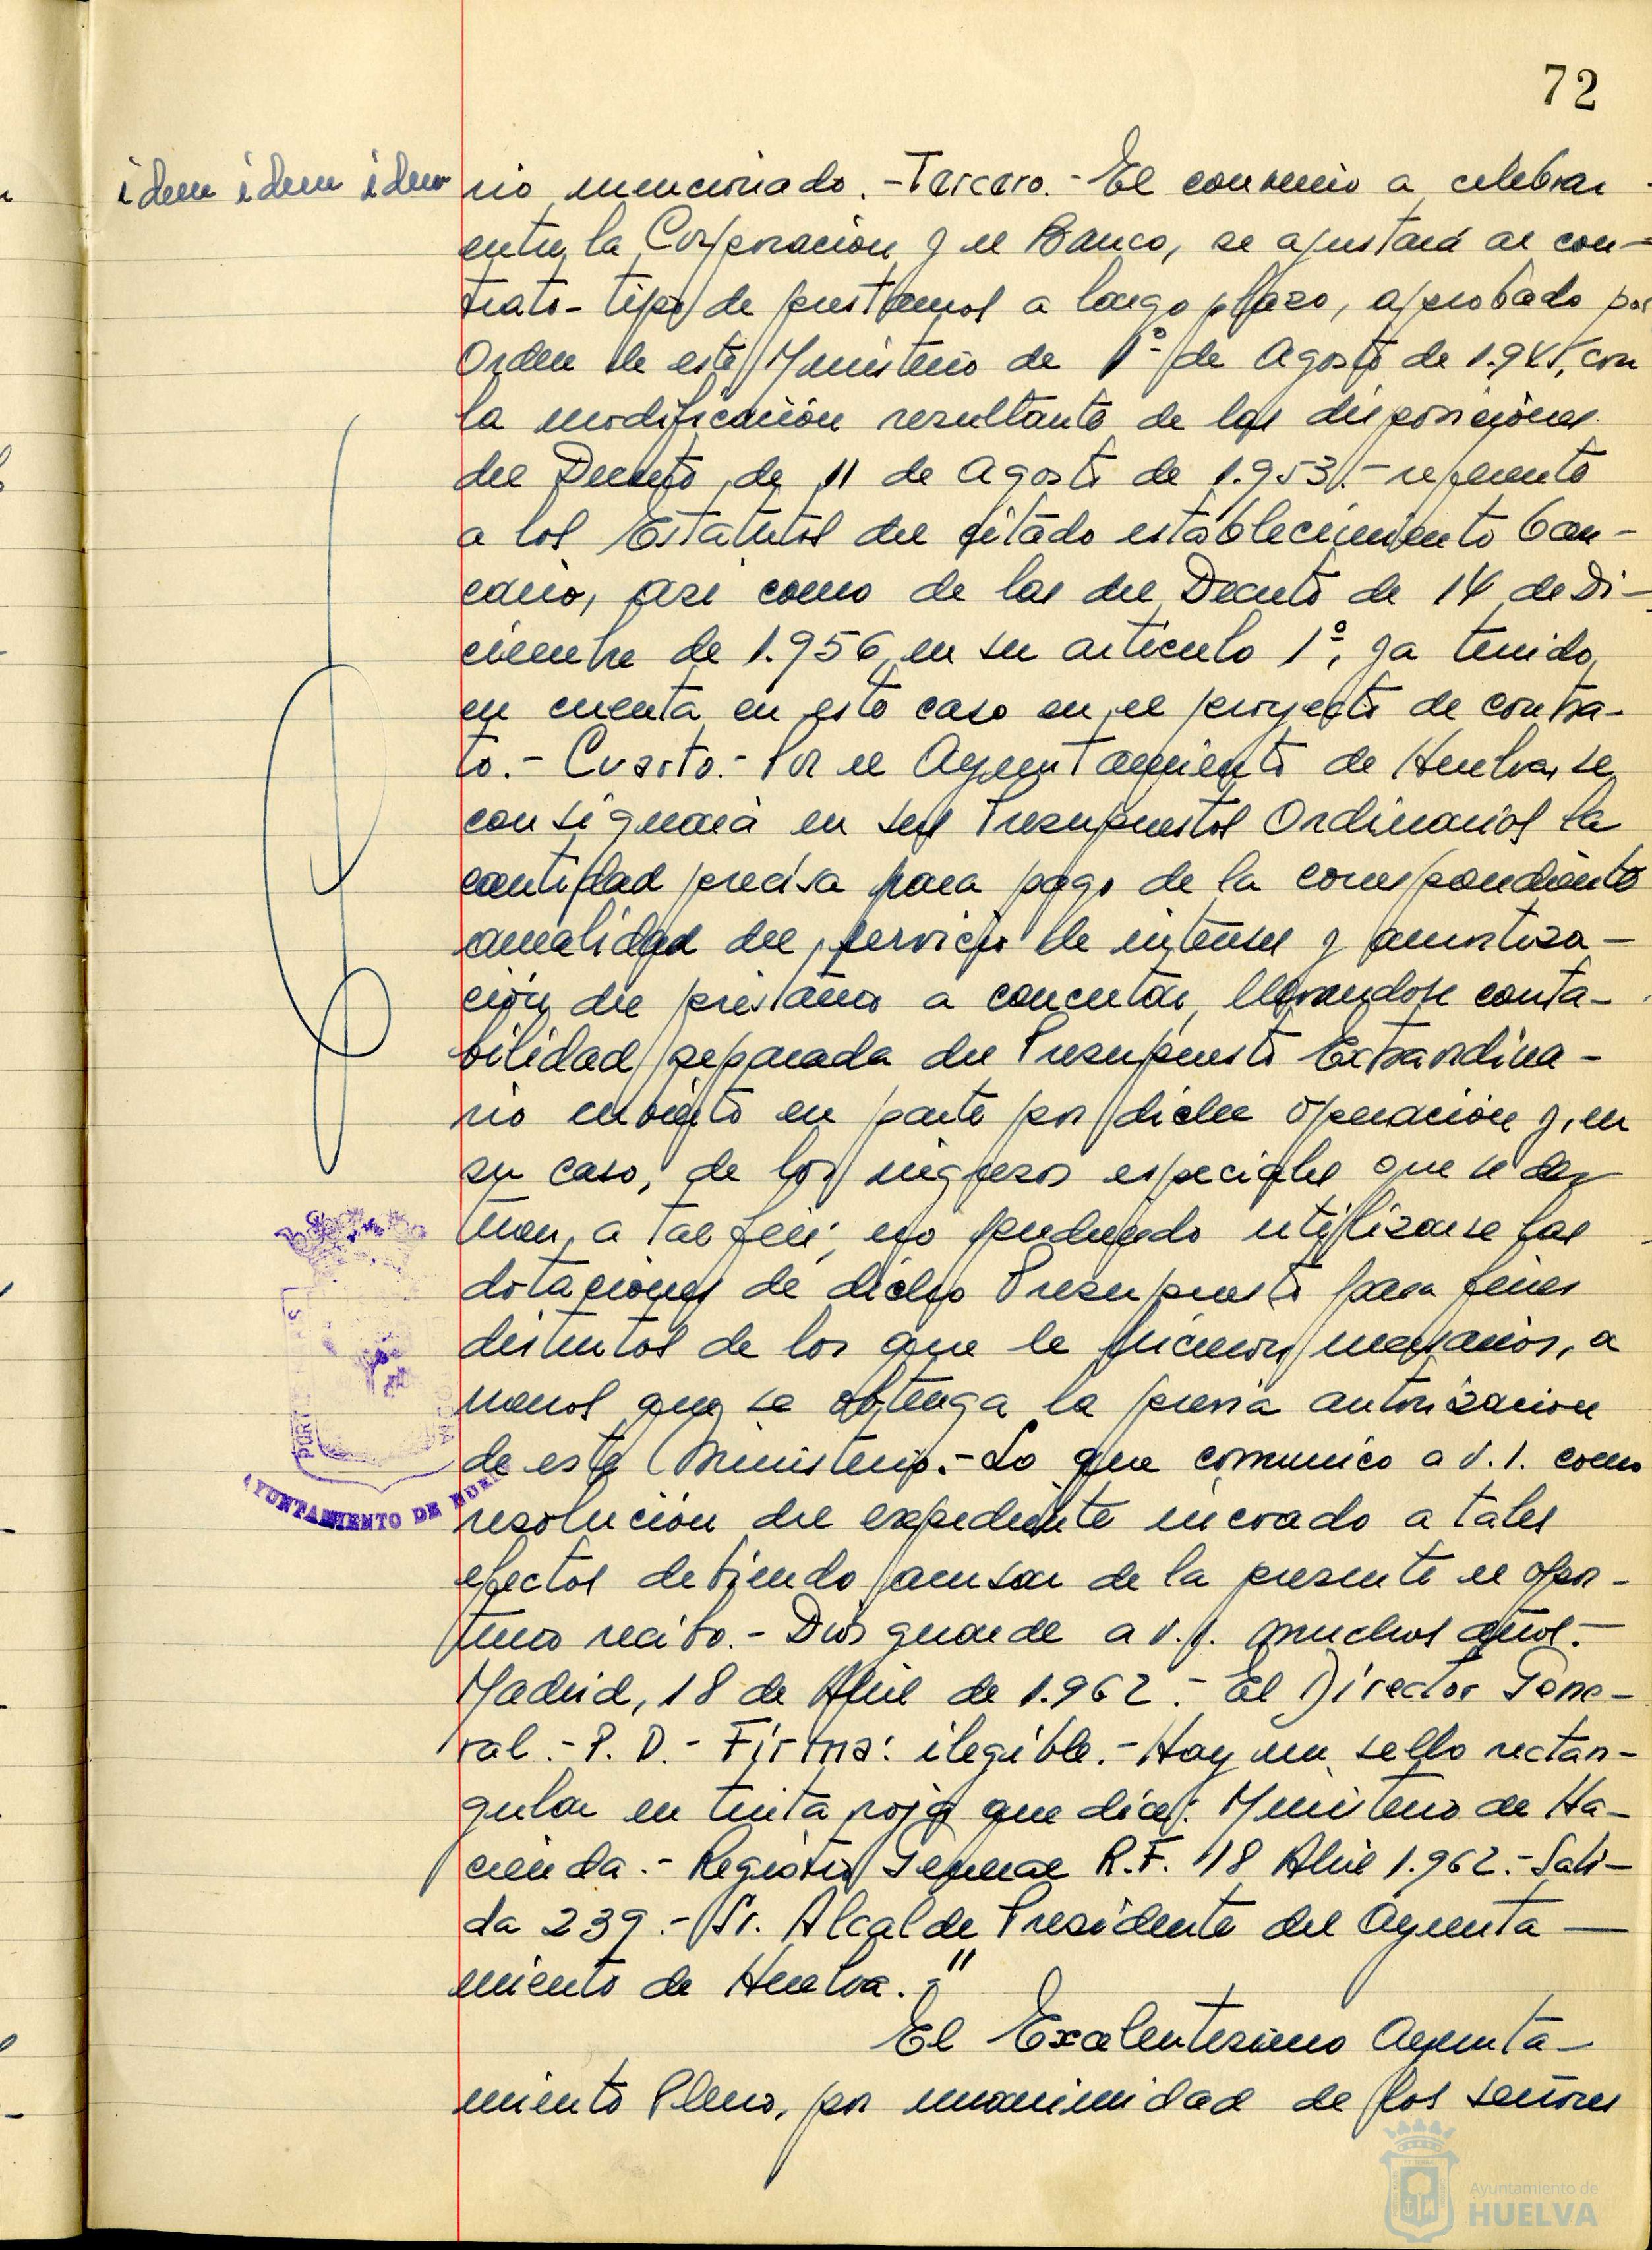 72
idem idem idem
rio mencionado.-Tercero.-El convenio a celebrar
entre la Corporación y el Banco, se ajustará al con-
trato-tipo de préstamos a largo plazo, aprobado por
Orden de este Ministerio de 1º de Agosto de 1.945, con
la modificación resultante de las disposiciones
del Decreto de 11 de Agosto de 1.953.- referente
a los Estatutos del citado establecimiento ban-
cario, asi como de las del Decreto de 14 de Di-
ciembre de 1.956 en su articulo 1º, ya tenido
en cuenta en este caso en el proyecto de contra-
to.- Cuarto.- Por el Ayuntamiento de Huelva se
consignará en sus Presupuestos Ordinarios la
cantidad precisa para pago de la correspondiente
anualidad del servicio de intereses y amortiza-
ción del préstamo a concertar, llevandose conta-
bilidad separada del Presupuesto Extraordina-
rio cubierto en parte por dicha operación y, en
su caso, de los ingresos especiales que se des
tinen a tal fin; no pudiendo utilizarse las
dotaciones de dicho Presupuesto para fines
distintos de los que le hicieron necesarios, a
menos que se obtenga la previa autorización
de este Ministerio.- Lo que comunico a V.I. como
resolución del expediente incoado a tales
efectos debiendo acusar de la presente el opor-
tuno recibo.- Dios guarde a V.I. muchos años.-
Madrid, 18 de Abril de 1.962.- El Director Gene-
ral.- P. D.- Firma: ilegible.- Hay un sello rectan-
gular en tinta roja que dice: Ministerio de Ha-
cienda.- Registro General R.F. 18 Abril 1.962.- Sali-
da 239.- Sr. Alcalde Presidente del Ayunta-
miento de Huelva."
El Excelentesimo Ayunta-
miento Pleno, por unanimidad de los señores
AYUNTAMIENTO DE HUELVA
Ayuntamiento de
HUELVA